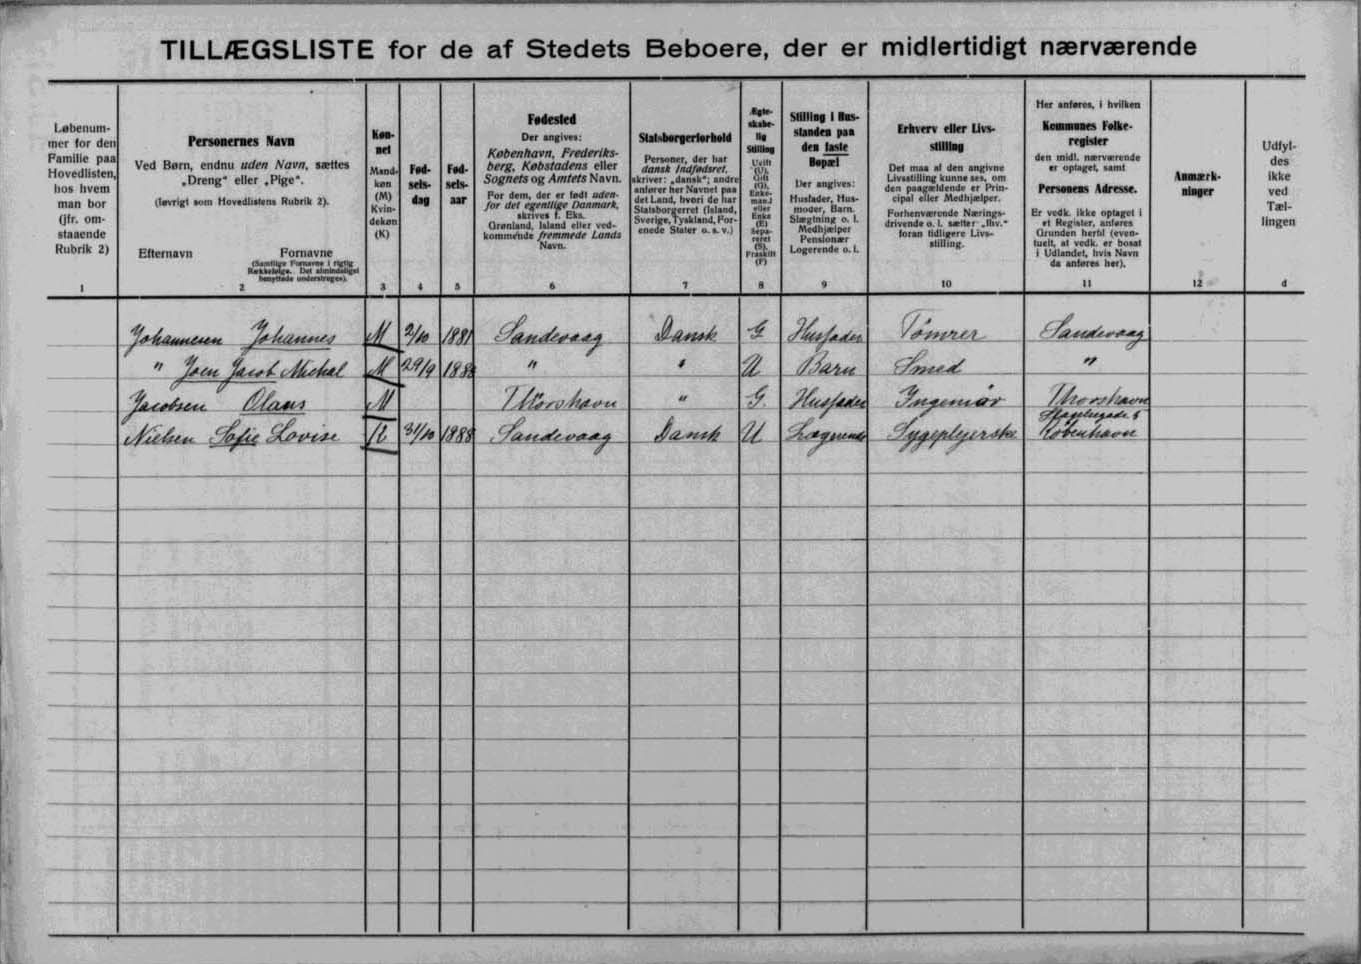 TILLÆGSLISTE for de af Stedets Beboere, der er midlertidigt nærværende
Løbenum-
mer for den
Familie paa
Hovedlisten,
hos hvem
man bor
(jfr. om-
staaende
Rubrik 2)
1
Personernes Navn
Ved Børn, endnu uden Navn, sættes
„Dreng“ eller „Pige“.
(Iøvrigt som Hovedlistens Rubrik 2).
Efternavn
Fornavne
(Samtlige Fornavne i rigtig
Rækkefølge. Det almindeligst
benyttede understreges).
2
Køn-
net
Mand-
køn
(M)
Kvin-
dekøn
(K)
3
Fød-
sels-
dag
4
Fød-
sels-
aar
5
Fødested
Der angives:
København, Frederiks-
berg, Købstadens eller
Sognets og Amtets Navn.
For dem, der er født uden-
for det egentlige Danmark,
skrives f. Eks.
Grønland, Island eller ved-
kommende fremmede Lands
Navn.
6
Statsborgerforhold
Personer, der har
dansk Indfødsret,
skriver: „dansk“; andre
anfører her Navnet paa
det Land, hvori de har
Statsborgerret (Island,
Sverige, Tyskland, For-
enede Stater o. s. v.)
7
Ægte-
skabe-
lig
Stilling
Ugift
(U),
Gift
(G),
Enke-
mand
eller
Enke
(E)
Sepa-
reret
(S),
Fraskilt
(F)
8
Stilling i Hus-
standen paa
den faste
Bopæl
Der angives:
Husfader, Hus-
moder, Barn.
Slægtning o. l.
Medhjælper
Pensionær
Logerende o. l.
9
Erhverv eller Livs-
stilling
Det maa af den angivne
Livsstilling kunne ses, om
den paagældende er Prin-
cipal eller Medhjælper.
Forhenværende Nærings-
drivende o. l. sætter „fhv.“
foran tidligere Livs-
stilling.
10
Her anføres, i hvilken
Kommunes Folke-
register
den midl. nærværende
er optaget, samt
Personens Adresse.
Er vedk. ikke optaget i
et Register, anføres
Grunden hertil (even-
tuelt, at vedk. er bosat
i Udlandet, hvis Navn
da anføres her).
11
Anmærk-
ninger
12
Udfyl-
des
ikke
ved
Tæl-
lingen
d
Johannesen Johannes M 2/10 1881 Sandevaag Dansk G Husfader Tömrer Sandevaag
" Joen Jacob Michal M 29/9 " " U Barn Smed "
Jacobsen Olaus M Thorshavn " G. Husfader Ingeniör Thorshavn
Nielsen Sofie Lovise K 31/10 1888 Sandevaag Dansk U Logerende Sygeplejerske København